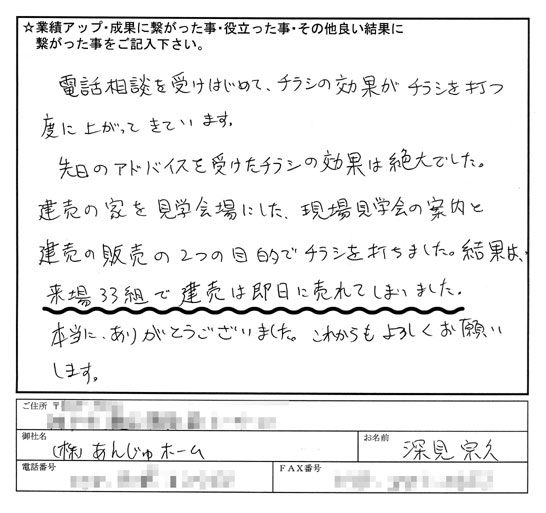 ☆業績アップ・成果に繋がった事・役立った事・その他良い結果に
繋がった事をご記入下さい。
電話相談を受けはじめて、チラシの効果がチラシを打つ
度に上がってきています。
先日のアドバイスを受けたチラシの効果は絶大でした。
建売の家を見学会場にした、現場見学会の案内と
建売の販売の2つの目的でチラシを打ちました。結果は、
来場33組で建売は即日に売れてしまいました。
本当に、ありがとうございました。これからもよろしくお願い
します。
ご住所 〒
御社名 (株)あんじゅホーム お名前 深見宗久
電話番号 FAX番号